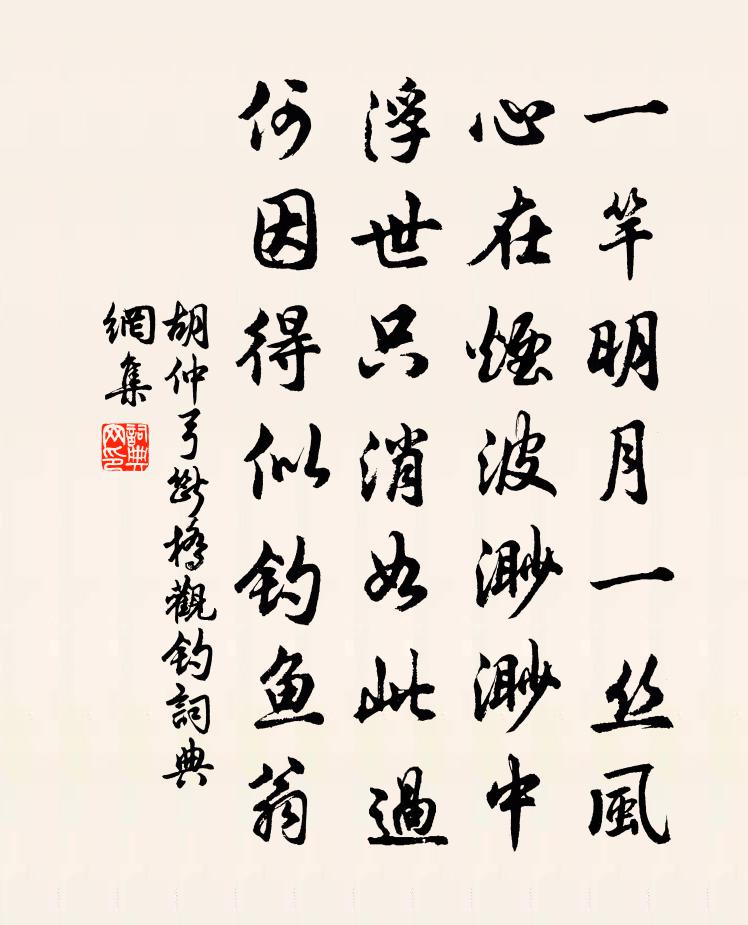 一竿明月一丝風
心在煙波渺渺中
浮世只消如此過
何因得似钓鱼翁
胡仲弓斷橋觀钓詞典
網集
詞典
网印